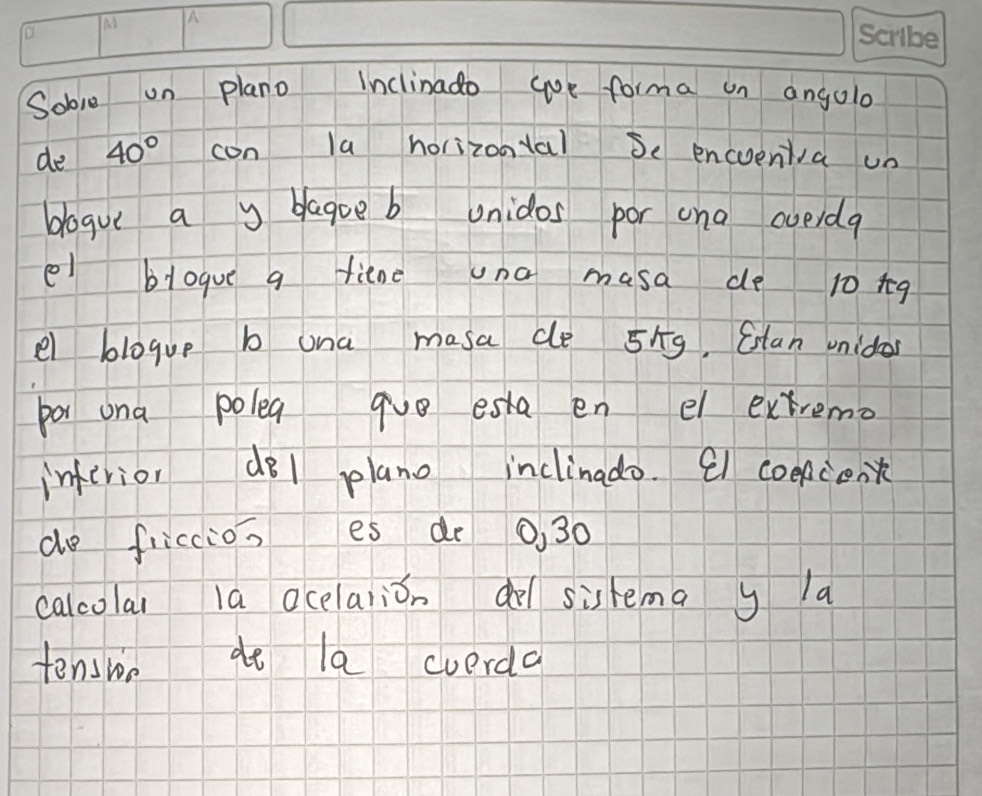 D
AS
A
Scribe
Sobre un plano inclinado que forma un angulo
de 40° con la horizontal Se encuentra un
bloque a y blaque b unidos por una cuerda
el bloque a tiene una masa de 10 kg
el bloque b una masa de 5kg. Estan unidos
por una polea que esta en el extremo
inferior del plano inclinado. El coeficiente
de friccion es de 0,30
calcolar la acelarión del sistema y la
tension de la cuerda